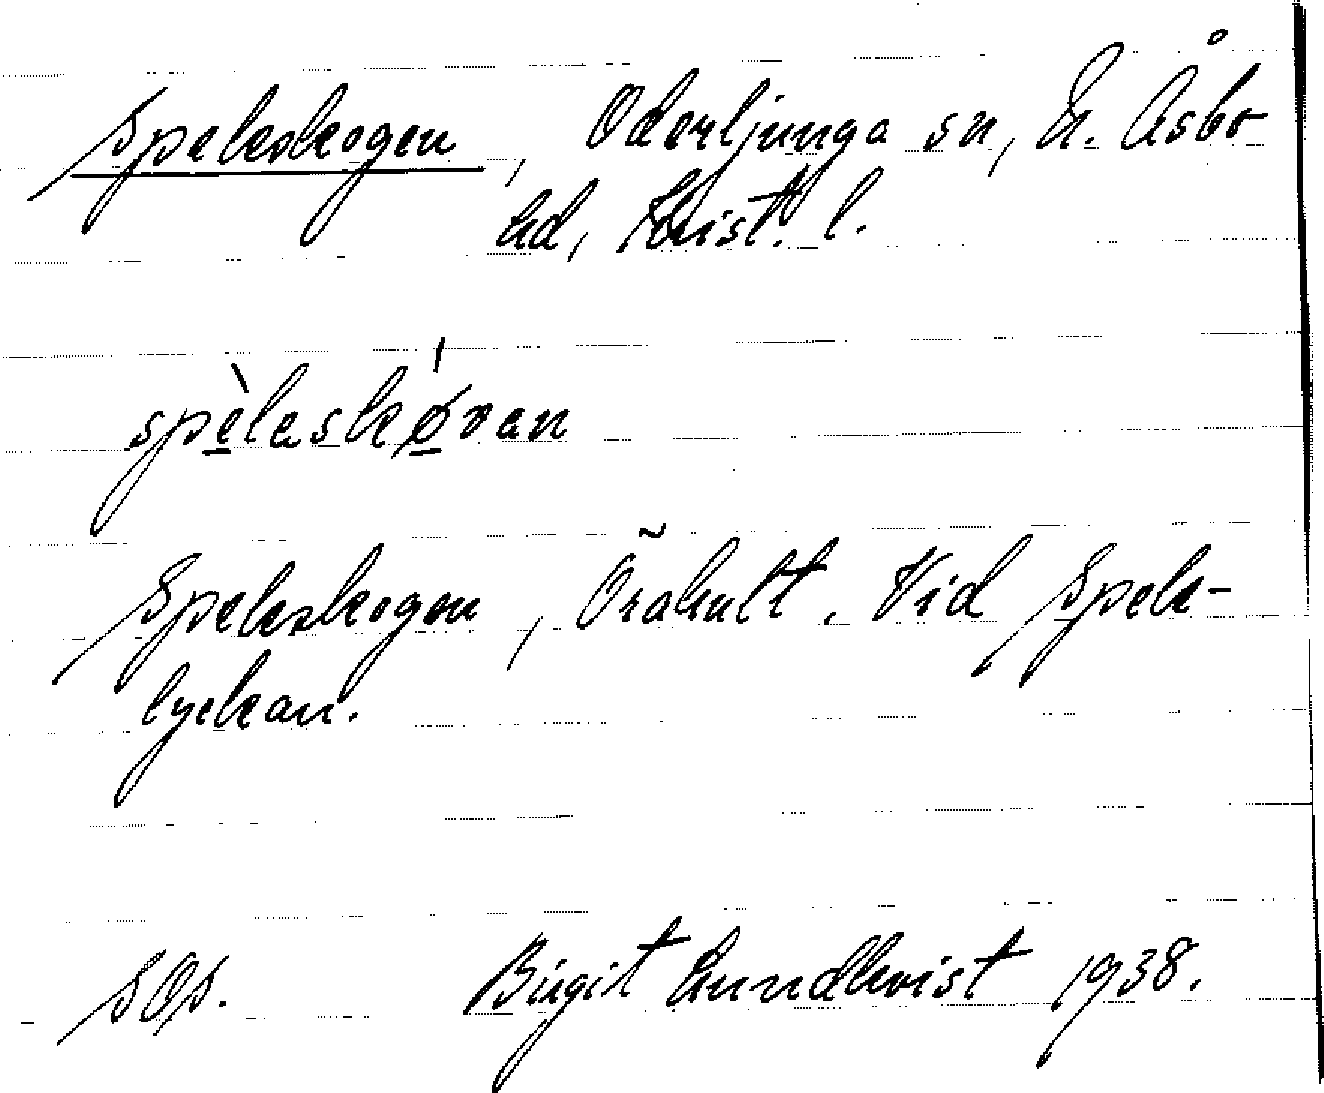 Speleskogen, Oderljunga sn, N. Åsbo
hd, Krist. l.
spèleskǿvan
Speleskogen, Örahult. Vid Spele-
lyckan.
SOs. Birgit Lundkvist 1938.